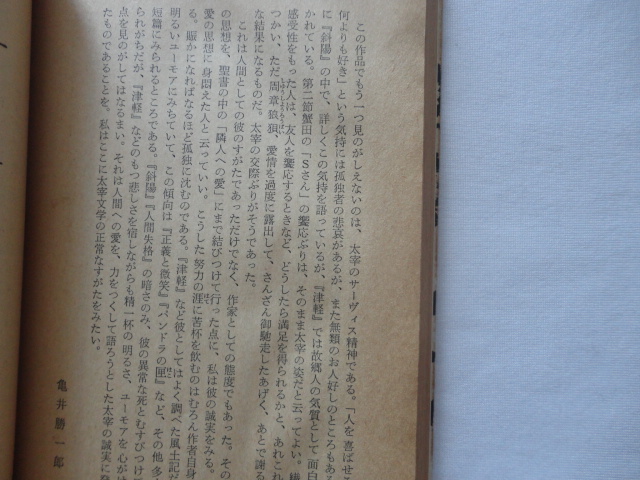 この作品でもう一つ見のがしえないのは、太宰のサーヴィス精神である。「人を喜ばせる
何よりも好き」という気持には孤独者の悲哀があるが、また無類のお人好しのところもある
に『斜陽』の中で、詳しくこの気持を語っているが、『津軽』では故郷人の気質として面白
かれている。第二節蟹田の「Sさん」の饗応ぶりは、そのまま太宰の姿だと云ってよい。繊
感受性をもった人は、友人を饗応するときなど、どうしたら満足を得られるかと、あれこれ
つかい、ただ周章狼狽、愛情を過度に露出して、さんざん御馳走したあげく、あとで謝る
な結果になるものだ。太宰の交際ぶりがそうであった。
これは人間としての彼のすがたであっただけでなく、作家としての態度でもあった。その
の思想を、聖書の中の「隣人への愛」にまで結びつけて行った点に、私は彼の誠実をみる。
愛の思想に身悶えた人と云っていい。こうした努力の涯に苦杯を飲むのはむろん作者自身
る。賑かになればなるほど孤独に沈むのである。『津軽』など彼としてはよく調べた風土記だ
明るいユーモアにみちていて、この傾向は『正義と微笑』『パンドラの匣』など、その他多
短篇にみられるところである。『斜陽』『人間失格』の暗さのみ、彼の異常な死とむすびつけ
られがちだが、『津軽』などのもつ悲しさを宿しながらも精一杯の明るさ、ユーモアを心が
点を見のがしてはなるまい。それは人間への愛を、力をつくして語ろうとした太宰の誠実に
たものであることを。私はここに太宰文学の正常なすがたをみたい。
亀井勝一郎